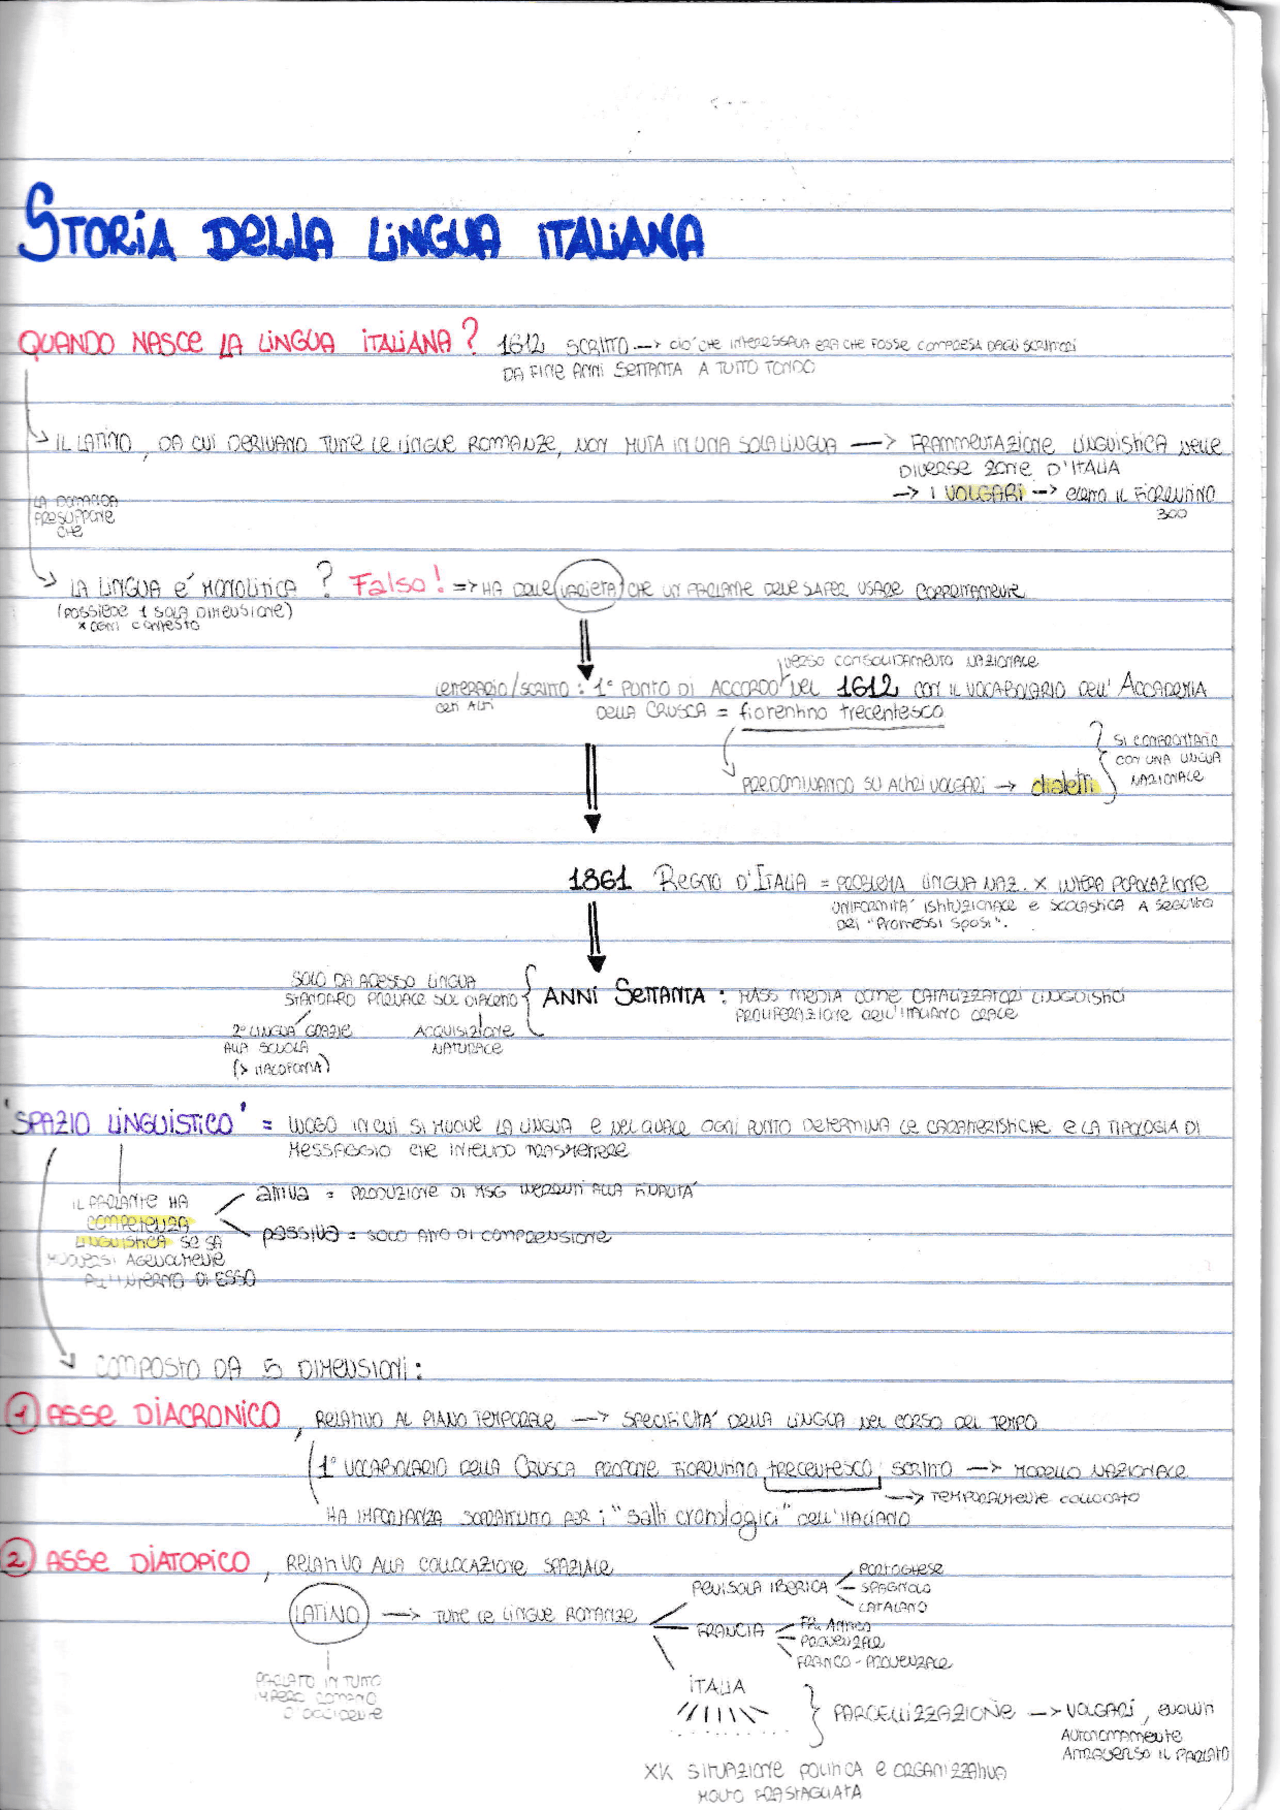 STORIA DELLA LINGUA ITALIANA
QUANDO NASCE LA LINGUA ITALIANA? 1612 SCRITTO → CIO' CHE INTERESSAVA ERA CHE FOSSE COMPRESA DAGLI SCRITTORI
DA FINE ANNI SETTANTA A TUTTO TONDO
IL LATINO, DA CUI DERIVANO TUTTE LE LINGUE ROMANZE, NON MUTA IN UNA SOLA LINGUA → FRAMMENTAZIONE LINGUISTICA NELLE
DIVERSE ZONE D'ITALIA
→ I VOLGARI → IL FIORENTINO
300
LA DOMANDA
PRESUPPONE
CHE
LA LINGUA E' MONOLITICA ? Falso! => HA DELLE VARIETA' CHE UN PARLANTE DEVE SAPER USARE CORRETTAMENTE
(POSSIEDE 1 SOLA DIMENSIONE)
x OGNI CONTESTO
VERSO CONSOLIDAMENTO NAZIONALE
LETTERARIO/SCRITTO : 1° PUNTO DI ACCORDO NEL 1612 CON IL VOCABOLARIO DELL' ACCADEMIA
CETI ALTI
DELLA CRUSCA = fiorentino trecentesco
SI CONFRONTANO
CON UNA LINGUA
NAZIONALE
PREDOMINANDO SU ALTRI VOLGARI → dialetti
1861 REGNO D'ITALIA = PROBLEMA LINGUA NAZ. X INTERA POPOLAZIONE
UNIFORMITA' ISTITUZIONALE E SCOLASTICA A SEGUITO
DEI "Promessi Sposi".
SOLO DA ADESSO LINGUA
STANDARD PREVALE SUL DIALETTO
ANNI SETTANTA : MASS MEDIA COME CATALIZZATORI LINGUISTICI
PROLIFERAZIONE DELL'ITALIANO ORALE
2° LINGUA GRAZIE
ALLA SCUOLA
(> ITALOFONIA)
ACQUISIZIONE
NATURALE
'SPAZIO LINGUISTICO' = LUOGO IN CUI SI MUOVE LA LINGUA E NEL QUALE OGNI PUNTO DETERMINA LE CARATTERISTICHE E LA TIPOLOGIA DI
MESSAGGIO CHE INTENDO TRASMETTERE
IL PARLANTE HA
COMPETENZA
LINGUISTICA SE SA
MUOVERSI AGEVOLMENTE
ALL'INTERNO DI ESSO
attiva = PRODUZIONE DI MSG INERENTI ALLA FINALITA'
passiva = SOLO ATTO DI COMPRENSIONE
COMPOSTO DA 5 DIMENSIONI:
1 ASSE DIACRONICO, RELATIVO AL PIANO TEMPORALE → SPECIFICITA' DELLA LINGUA NEL CORSO DEL TEMPO
1° VOCABOLARIO DELLA CRUSCA PROPONE FIORENTINO TRECENTESCO SCRITTO → MODELLO NAZIONALE
→ TEMPORALMENTE COLLOCATO
HA IMPORTANZA SOPRATTUTTO PER i "salti cronologici" DELL'ITALIANO
2 ASSE DIATOPICO, RELATIVO ALLA COLLOCAZIONE SPAZIALE
LATINO → TUTTE LE LINGUE ROMANZE
PENISOLA IBERICA
PORTOGHESE
SPAGNOLO
CATALANO
FRANCIA
FR. ANTICO
PROVENZALE
FRANCO-PROVENZALE
PARLATO IN TUTTO
IMPERO ROMANO
D'OCCIDENTE
ITALIA
PARCELLIZZAZIONE → VOLGARI, EVOLUTI
AUTONOMAMENTE
ATTRAVERSO IL PARLATO
XK SITUAZIONE POLITICA E ORGANIZZATIVA
MOLTO FRASTAGLIATA